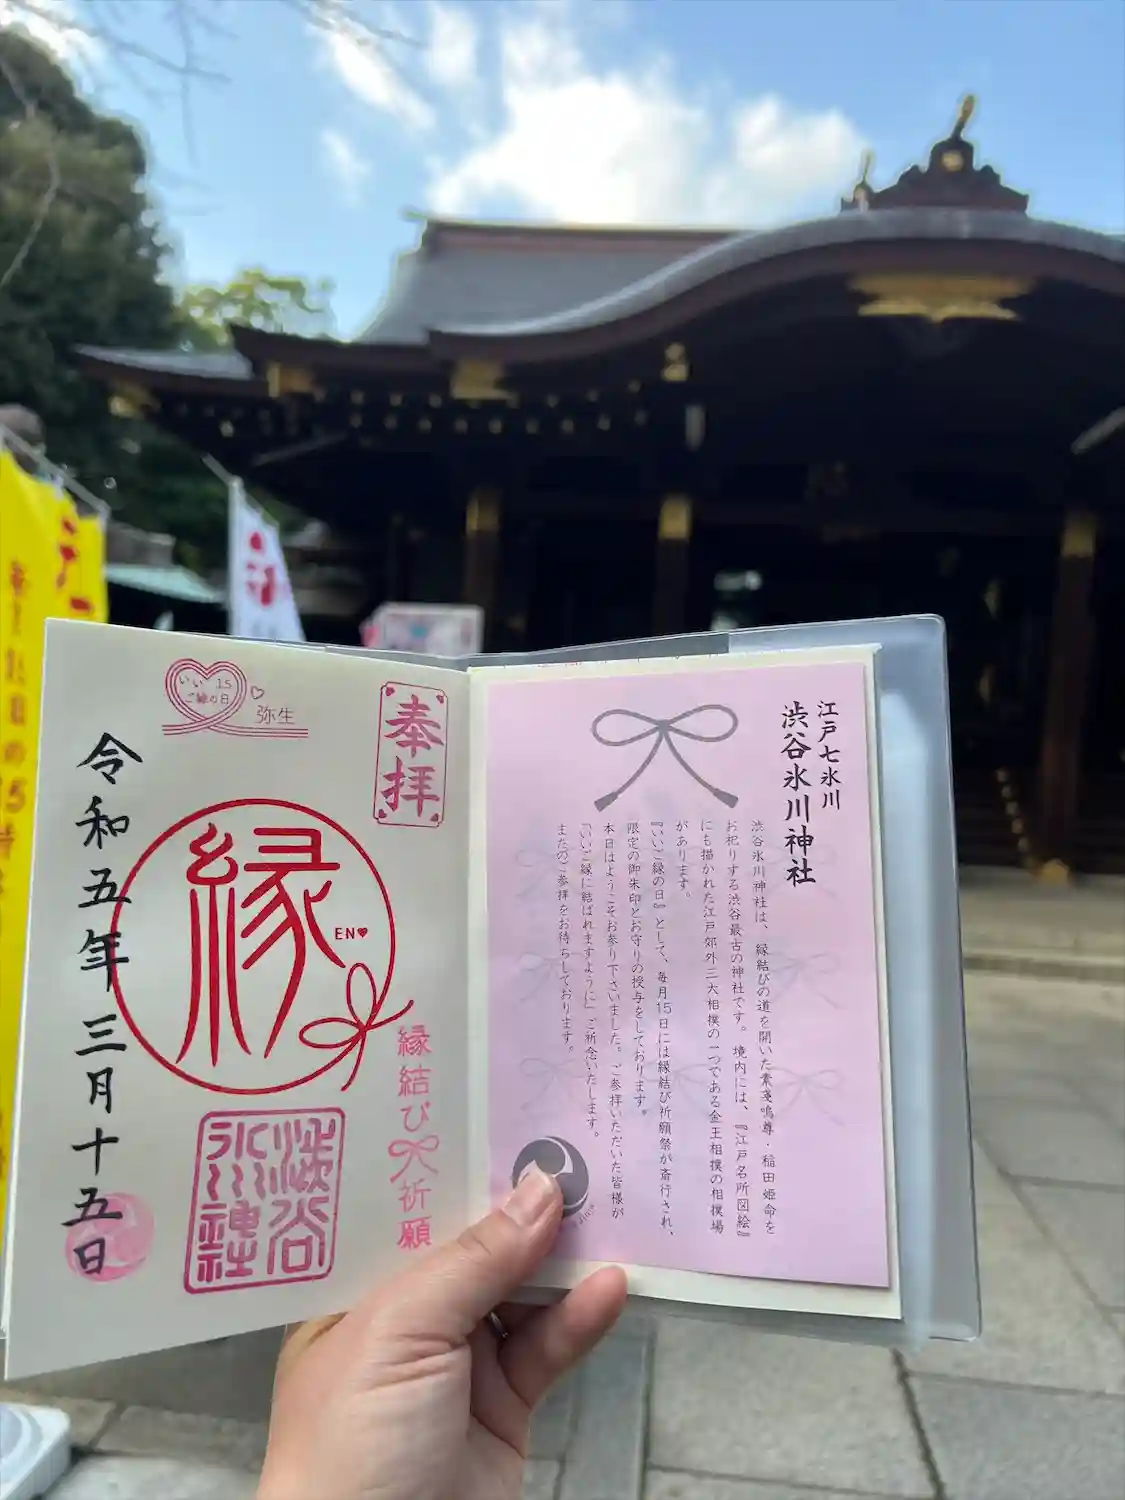 いい 15
ご縁の日
弥生
奉拝
縁
EN♥
縁結び
祈願
令和五年三月十五日
渋谷
氷川神社
江戸七氷川
渋谷氷川神社
渋谷氷川神社は、縁結びの道を開いた素戔嗚尊・稲田姫命を
お祀りする渋谷最古の神社です。境内には、『江戸名所図絵』
にも描かれた江戸郊外三大相撲の一つである金王相撲の相撲場
があります。
『いいご縁の日』として、毎月15日には縁結び祈願祭が斎行され、
限定の御朱印とお守りの授与をしております。
本日はようこそお参り下さいました。ご参拝いただいた皆様が
「いいご縁に結ばれますように」ご祈念いたします。
またのご参拝をお待ちしております。